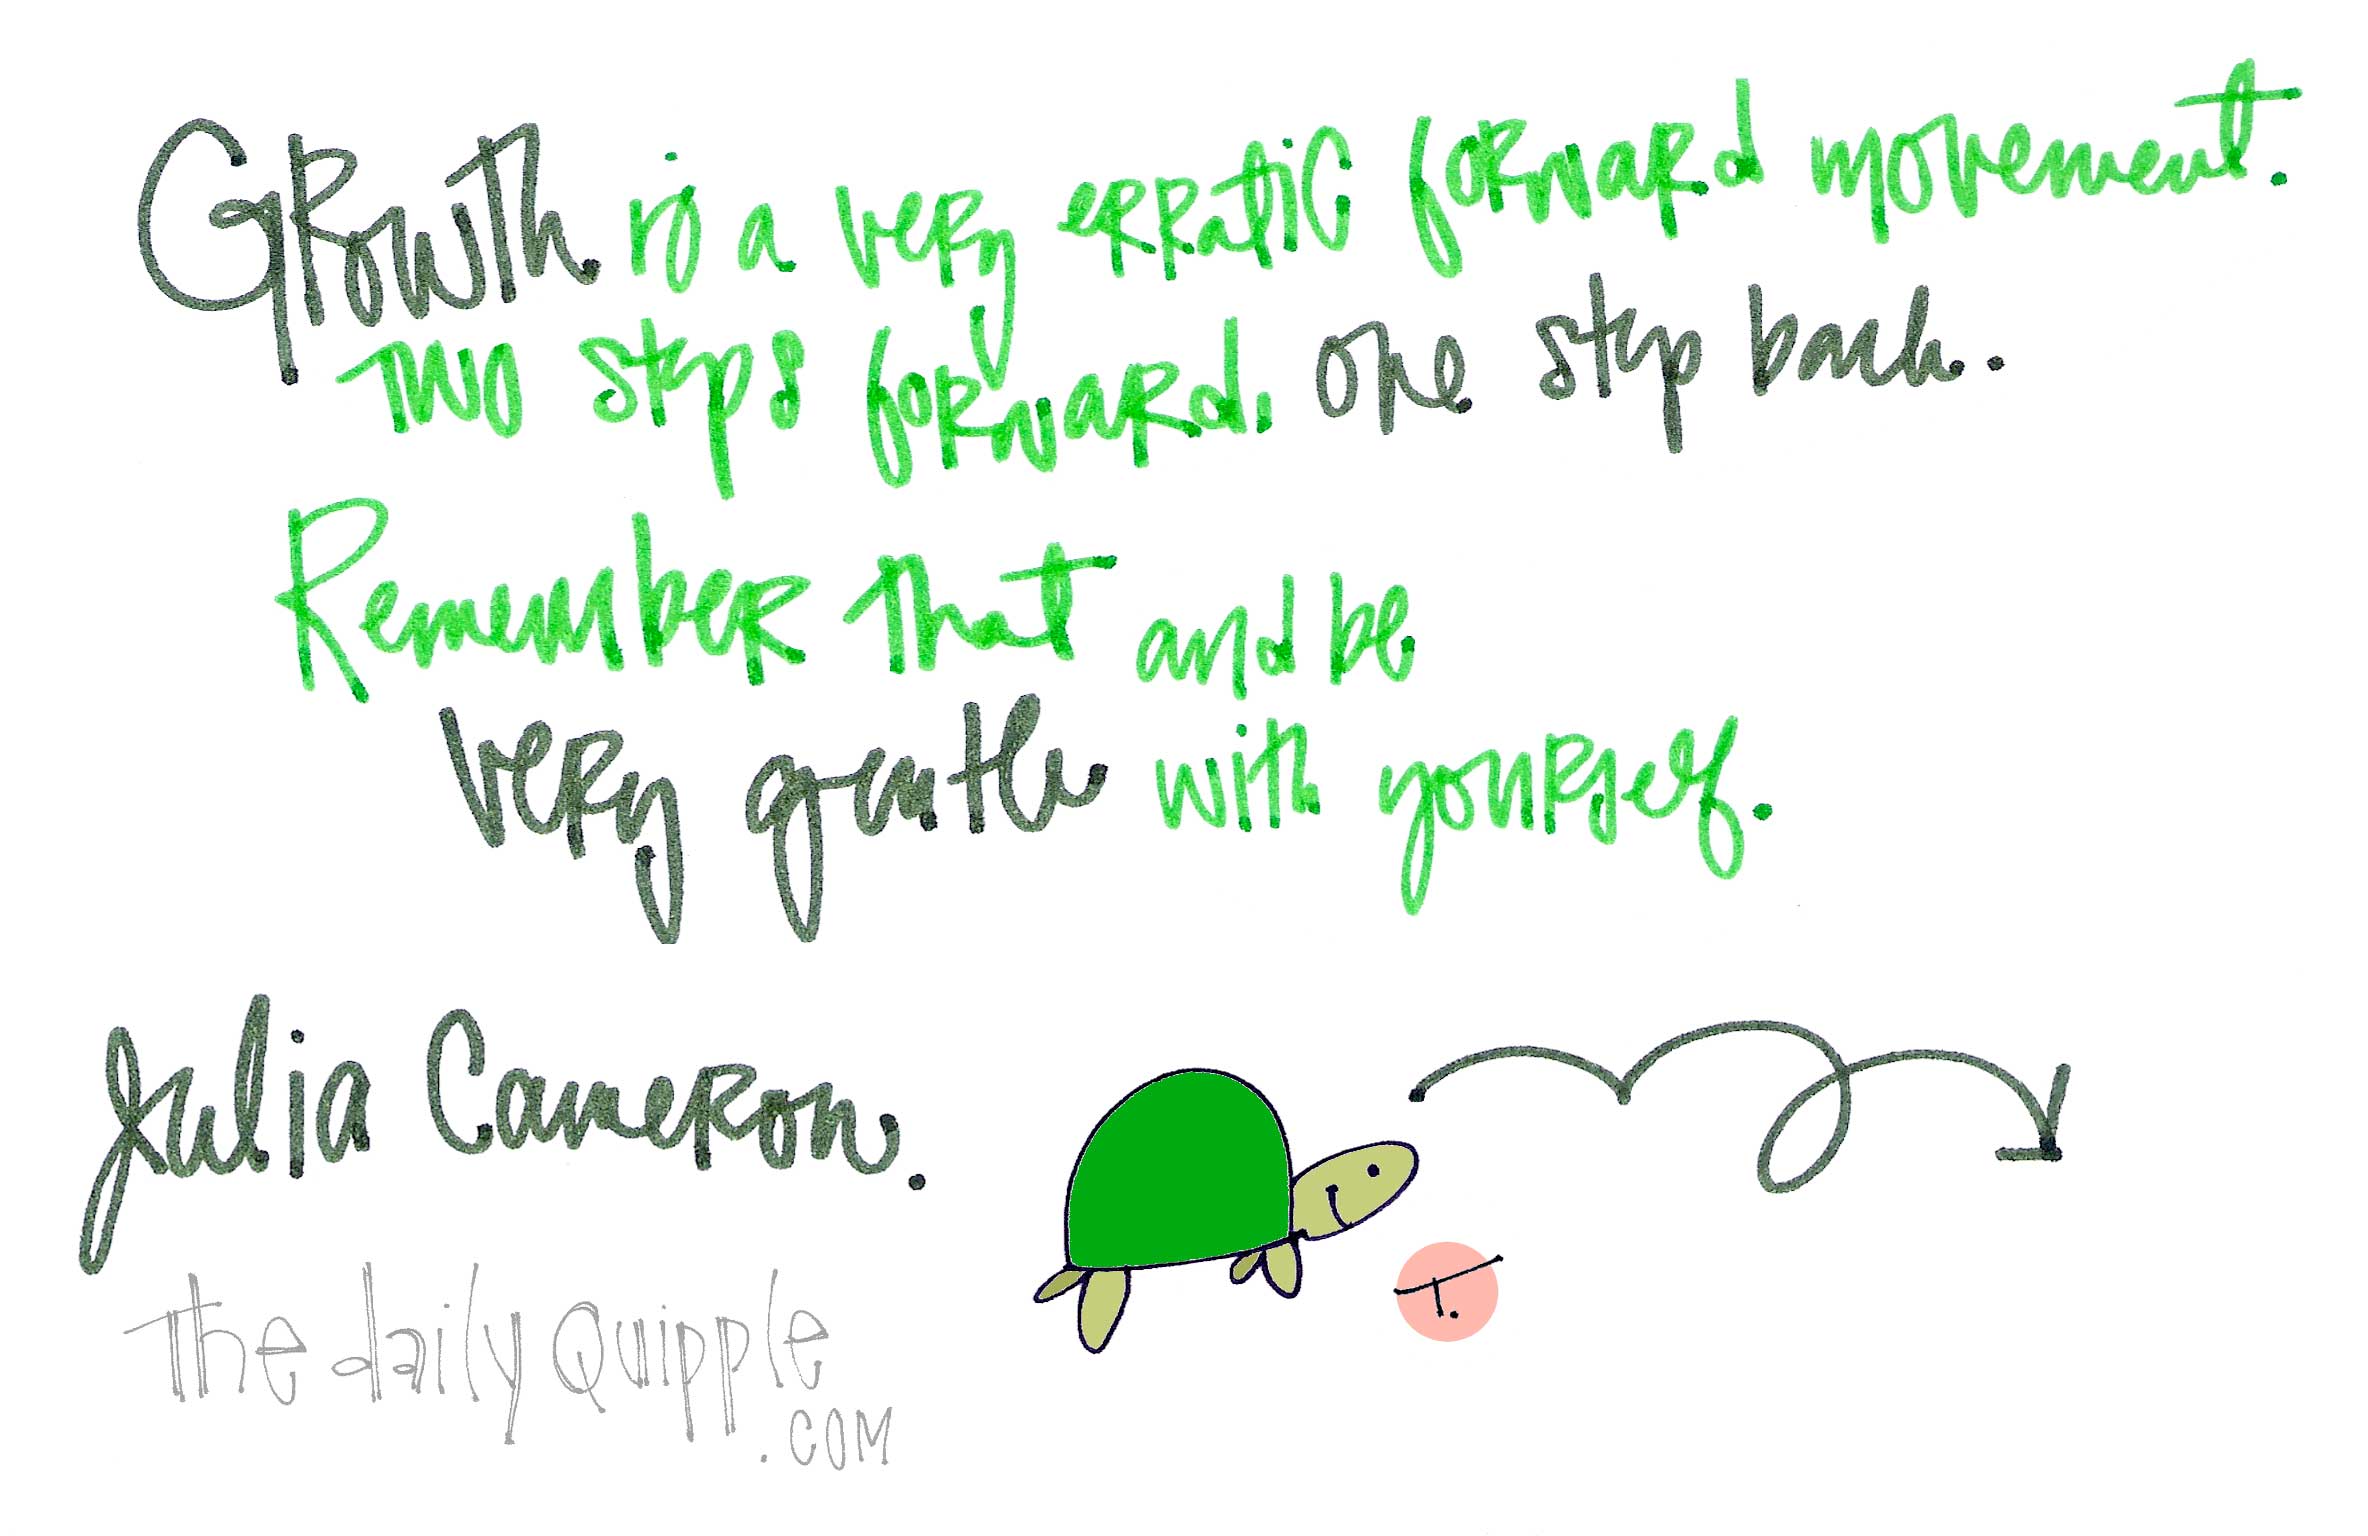 Growth is a very erratic forward movement.
Two steps forward, one step back.
Remember that and be
very gentle with yourself.
Julia Cameron.
the daily Quipple
.com
T.